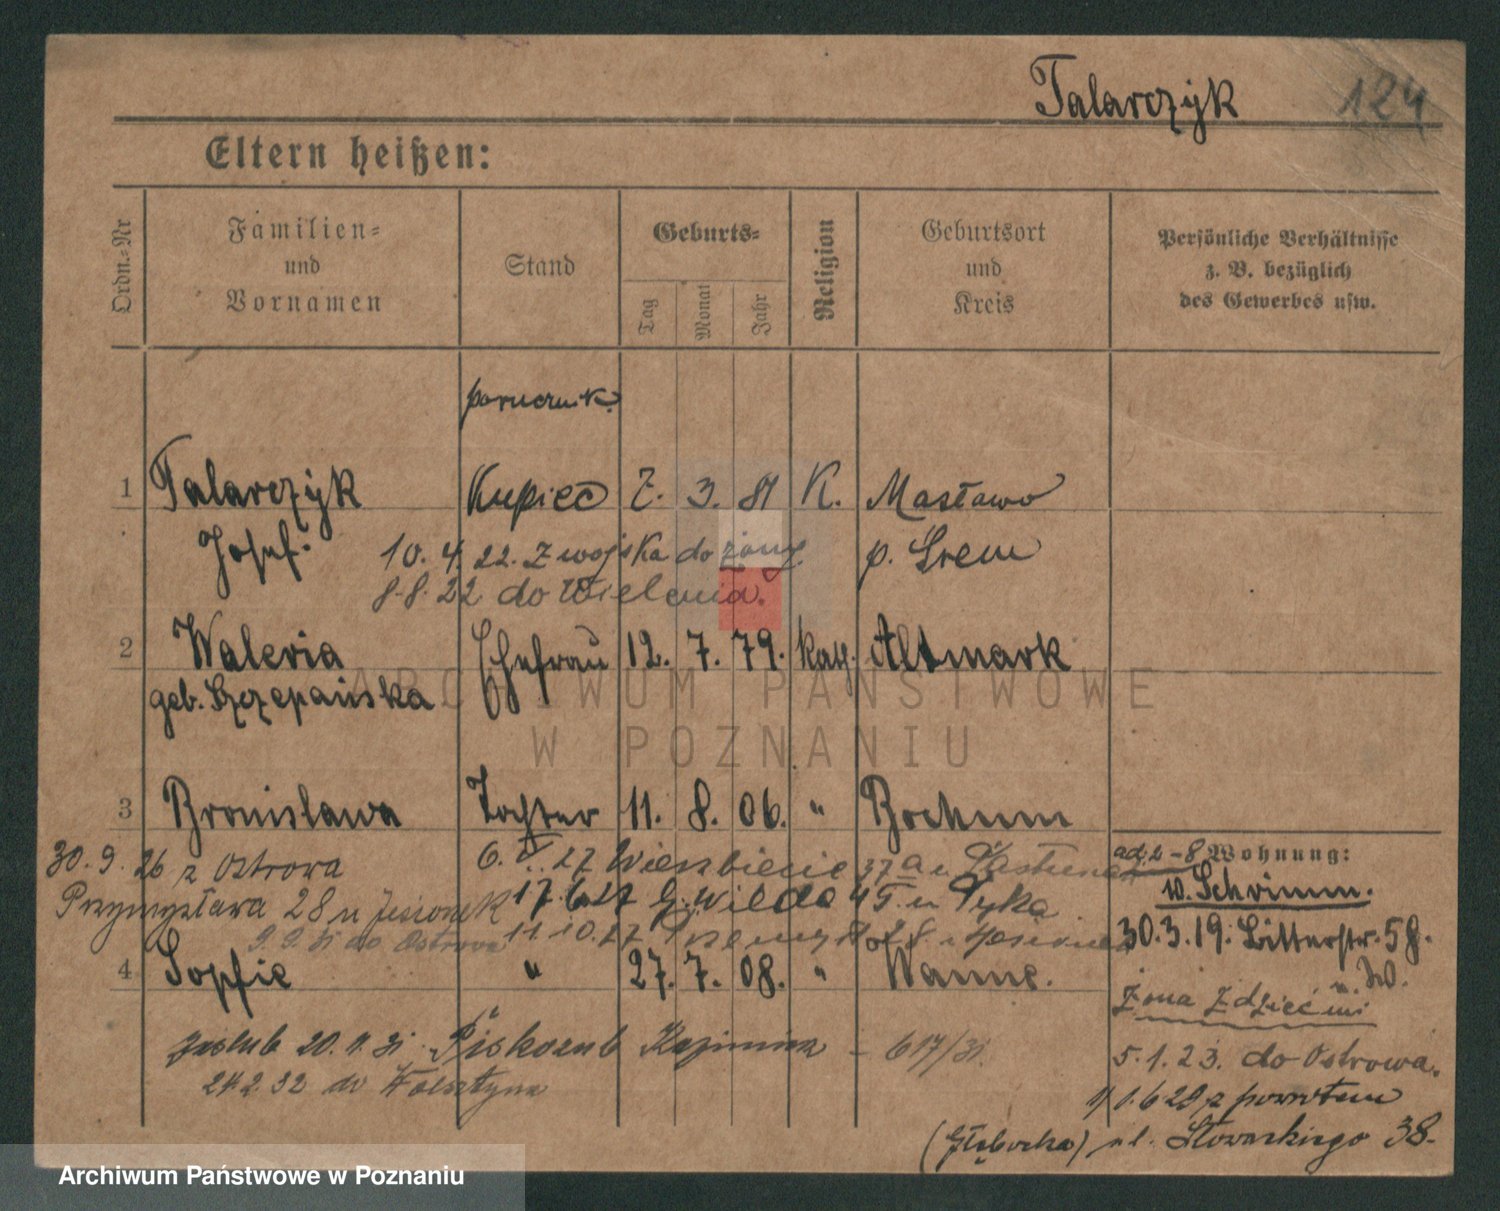 Talarczyk 124
Eltern heißen:
Ordn.-Nr
Familien-
und
Vornamen
Stand
Geburts-
Tag Monat Jahr
Religion
Geburtsort
und
Kreis
Persönliche Verhältnisse
z. B. bezüglich
des Gewerbes usw.
porucznik.
1 Talarczyk Kupiec 7. 3. 81 K. Masłowo
Josef. 10. 4. 22. Z wojska do żony. p. Śrem
8.8.22 do Wielenia.
2 Waleria Ehefrau 12. 7. 79. kath. Altmark
geb. Szczepańska
ARCHIWUM PAŃSTWOWE
W POZNANIU
3 Bronislawa Tochter 11. 8. 06. " Bochum
30.9.26 z Ostrowa 6. 27 Wierzbiecie 37a u
Przymysława 28 u Jesionek 17.6.27 G. Wilda 45 u
9.9.31 do Ostrowa 11.10.27 28. u
4 Sopfie " 27. 7. 08. " Wanne.
zaślub 20. 31. Piskozub Kazimierz - 617/31.
24.2.32 do Wolsztyna
ad. 2-8 Wohnung:
w. Schrimm.
30.3.19. Bitterstr. 58.
Żona Z dziećmi
5.1.23. do Ostrowa.
z powrotem
(Głęboka) ul. Słowackiego 38.
Archiwum Państwowe w Poznaniu